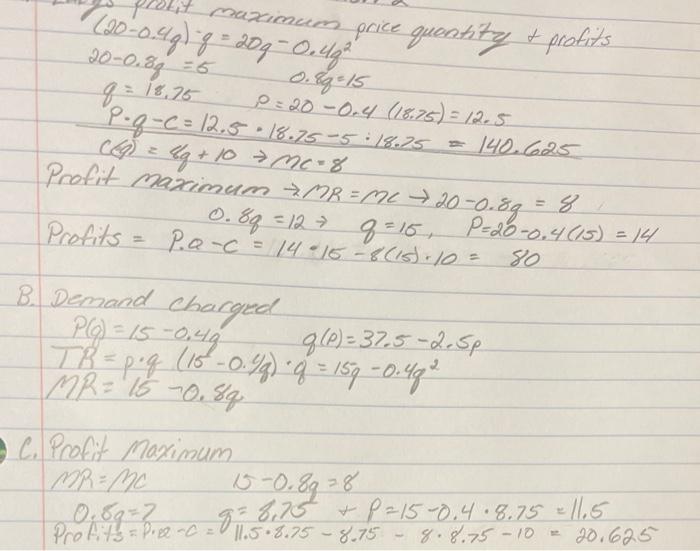 profit maximum price quantity + profits
(20-0.4q)·q = 20q - 0.4q²
20-0.8q = 5 0.8q=15
q = 18.75 P = 20 - 0.4 (18.75) = 12.5
P·q-C = 12.5 · 18.75 - 5 · 18.75 = 140.625
C(q) = 8q + 10 → MC = 8
Profit maximum → MR = MC → 20-0.8q = 8
0.8q = 12 → q = 15, P=20-0.4(15) = 14
Profits = P.Q-C = 14·15 - 8(15)·10 = 80
B. Demand charged
P(q) = 15 - 0.4q q(p) = 37.5 - 2.5p
TR = p·q (15 - 0.4q)·q = 15q - 0.4q²
MR = 15 - 0.8q
C. Profit Maximum
MR = MC 15 - 0.8q = 8
0.8q = 7 q = 8.75 + P = 15 - 0.4 · 8.75 = 11.5
Profits = P·Q - C = 11.5 · 8.75 - 8.75 - 8 · 8.75 - 10 = 20.625